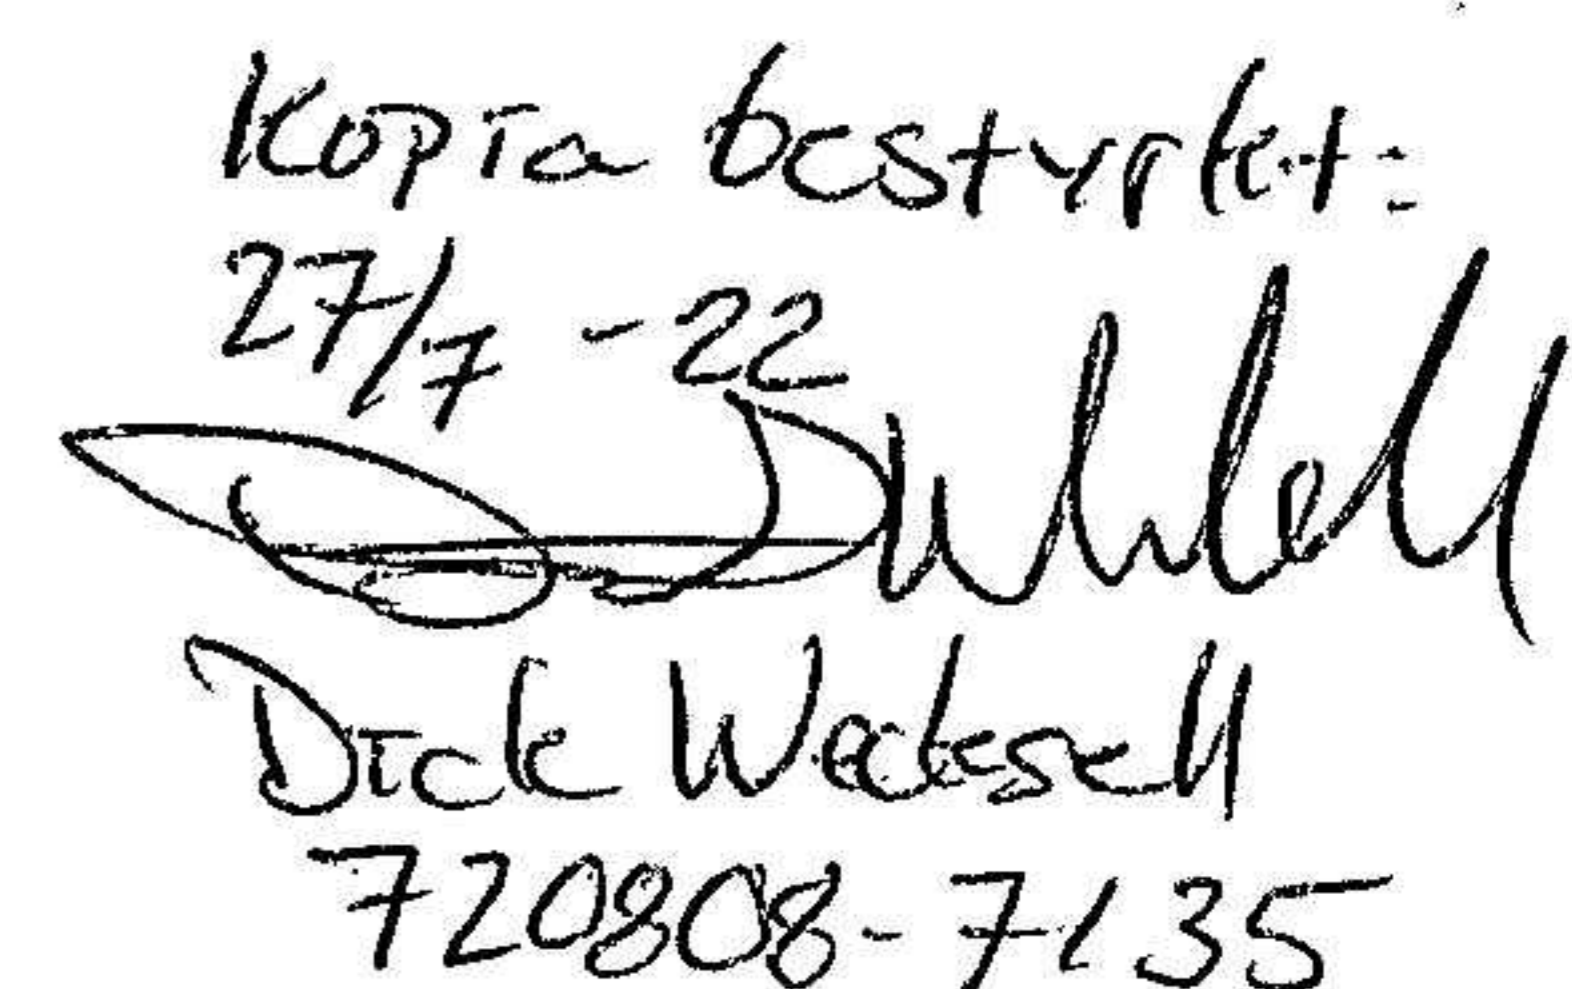 Kopia bestyrket:
27/7 -22
Dick Wecksell
720808-7135